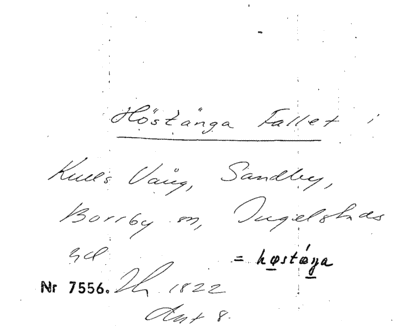 Höstänga Fallet i
Kulls Vång, Sandby,
Borrby sn, Ingelstads
hd
= høstæŋa
Nr 7556. Lh 1822
Akt 8.